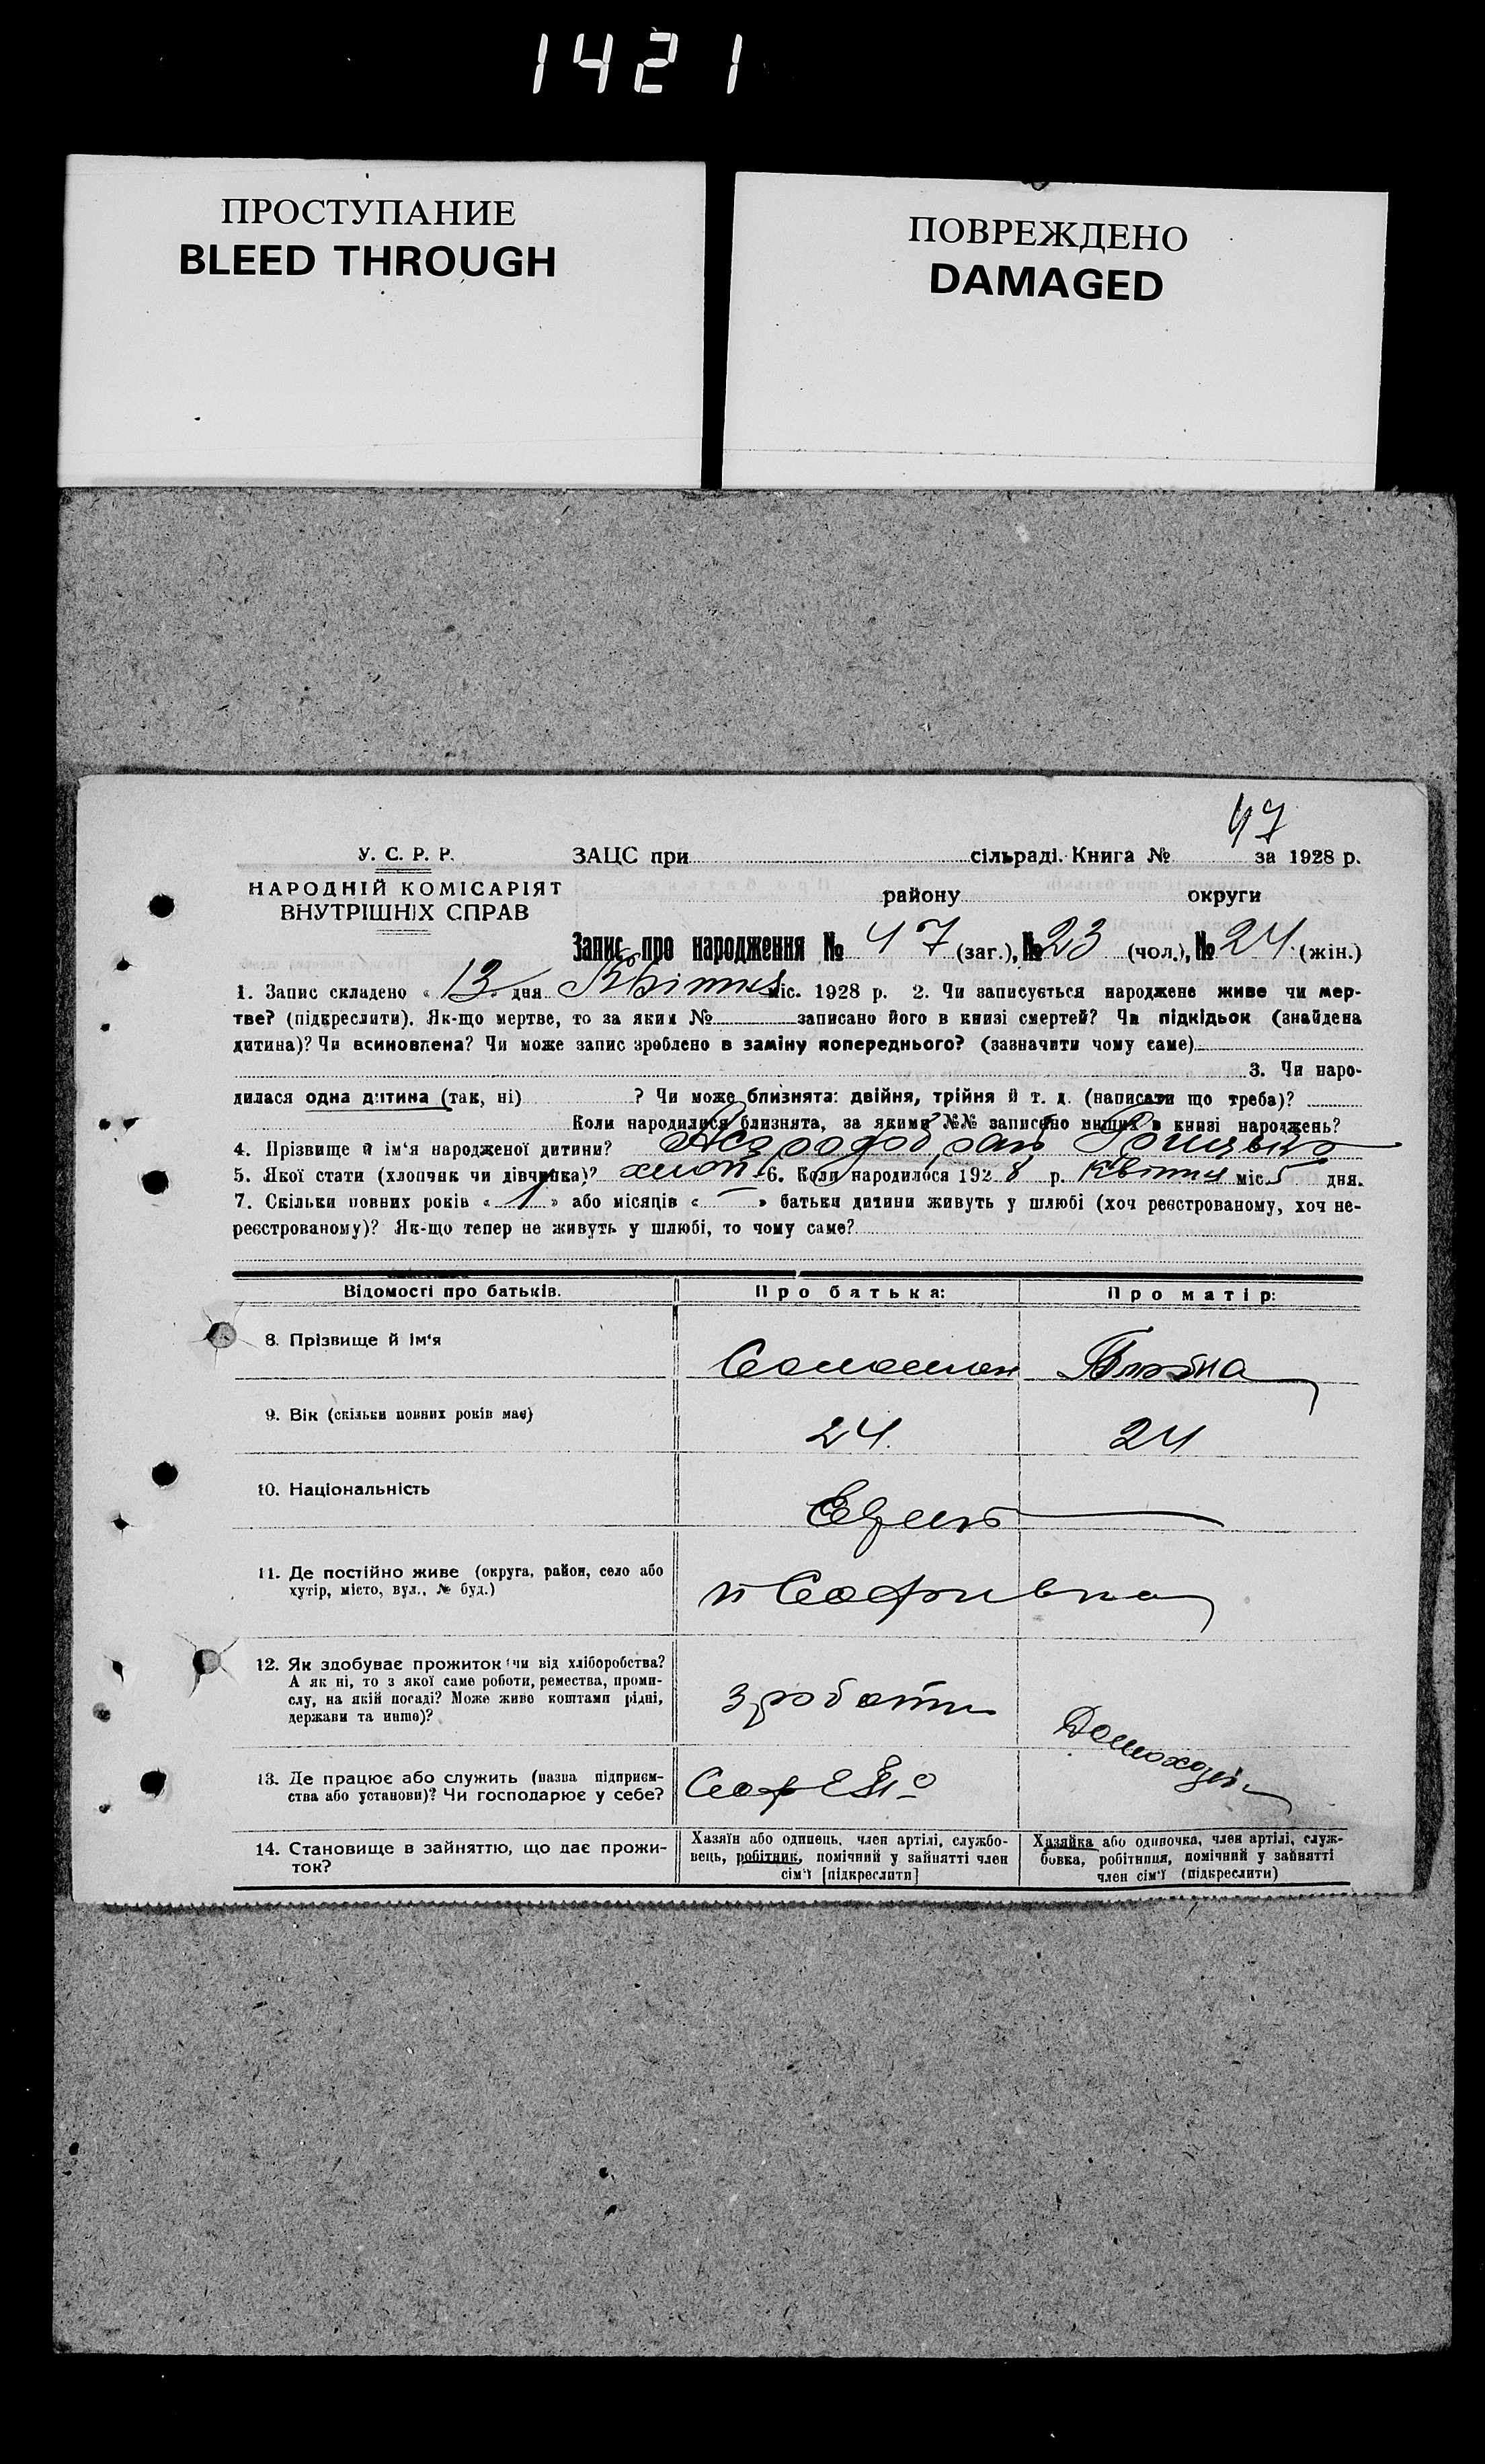 1421
ПРОСТУПАНИЕ
BLEED THROUGH
ПОВРЕЖДЕНО
DAMAGED
47
У. С. Р. Р.
НАРОДНІЙ КОМІСАРІЯТ
ВНУТРІШНІХ СПРАВ
ЗАЦС при сільраді. Книга № за 1928 р.
району округи
Запис про народження № 47 (заг.), № 23 (чол.), № 24 (жін.)
1. Запис складено « 13 » дня Квітня міс. 1928 р. 2. Чи записується народжене живе чи мер-
тве? (підкреслити). Як-що мертве, то за яким № записано його в книзі смертей? Чи підкідьок (знайдена
дитина)? Чи всиновлена? Чи може запис зроблено в заміну попереднього? (зазначити чому саме)
3. Чи наро-
дилася одна дитина (так, ні) ? Чи може близнята: двійня, трійня й т. д. (написати що треба)?
Коли народилися близнята, за якими №№ записано инших в книзі народжень?
4. Прізвище й ім‘я народженої дитини?
5. Якої стати (хлопчик чи дівчинка)? хлоп. 6. Коли народилося 1928 р. Квітня міс. 5 дня.
7. Скільки повних років « 1 » або місяців « — » батьки дитини живуть у шлюбі (хоч реєстрованому, хоч не-
реєстрованому)? Як-що тепер не живуть у шлюбі, то чому саме?
Відомості про батьків. Про батька: Про матір:
8. Прізвище й ім‘я Соломон
9. Вік (скільки повних років має) 24. 24
10. Національність Евреи
11. Де постійно живе (округа, район, село або
хутір, місто, вул., № буд.)
12. Як здобуває прожиток (чи від хліборобства?
А як ні, то з якої саме роботи, ремества, проми-
слу, на якій посаді? Може живе коштами рідні,
держави та инше)?
з роботи
13. Де працює або служить (назва підприєм-
ства або установи)? Чи господарює у себе?
14. Становище в зайняттю, що дає прожи-
ток?
Хазяїн або одинець, член артілі, службо-
вець, робітник, помічний у зайнятті член
сім‘ї [підкреслити]
Хазяйка або одиночка, член артілі, служ-
бовка, робітниця, помічний у зайнятті
член сім‘ї (підкреслити)